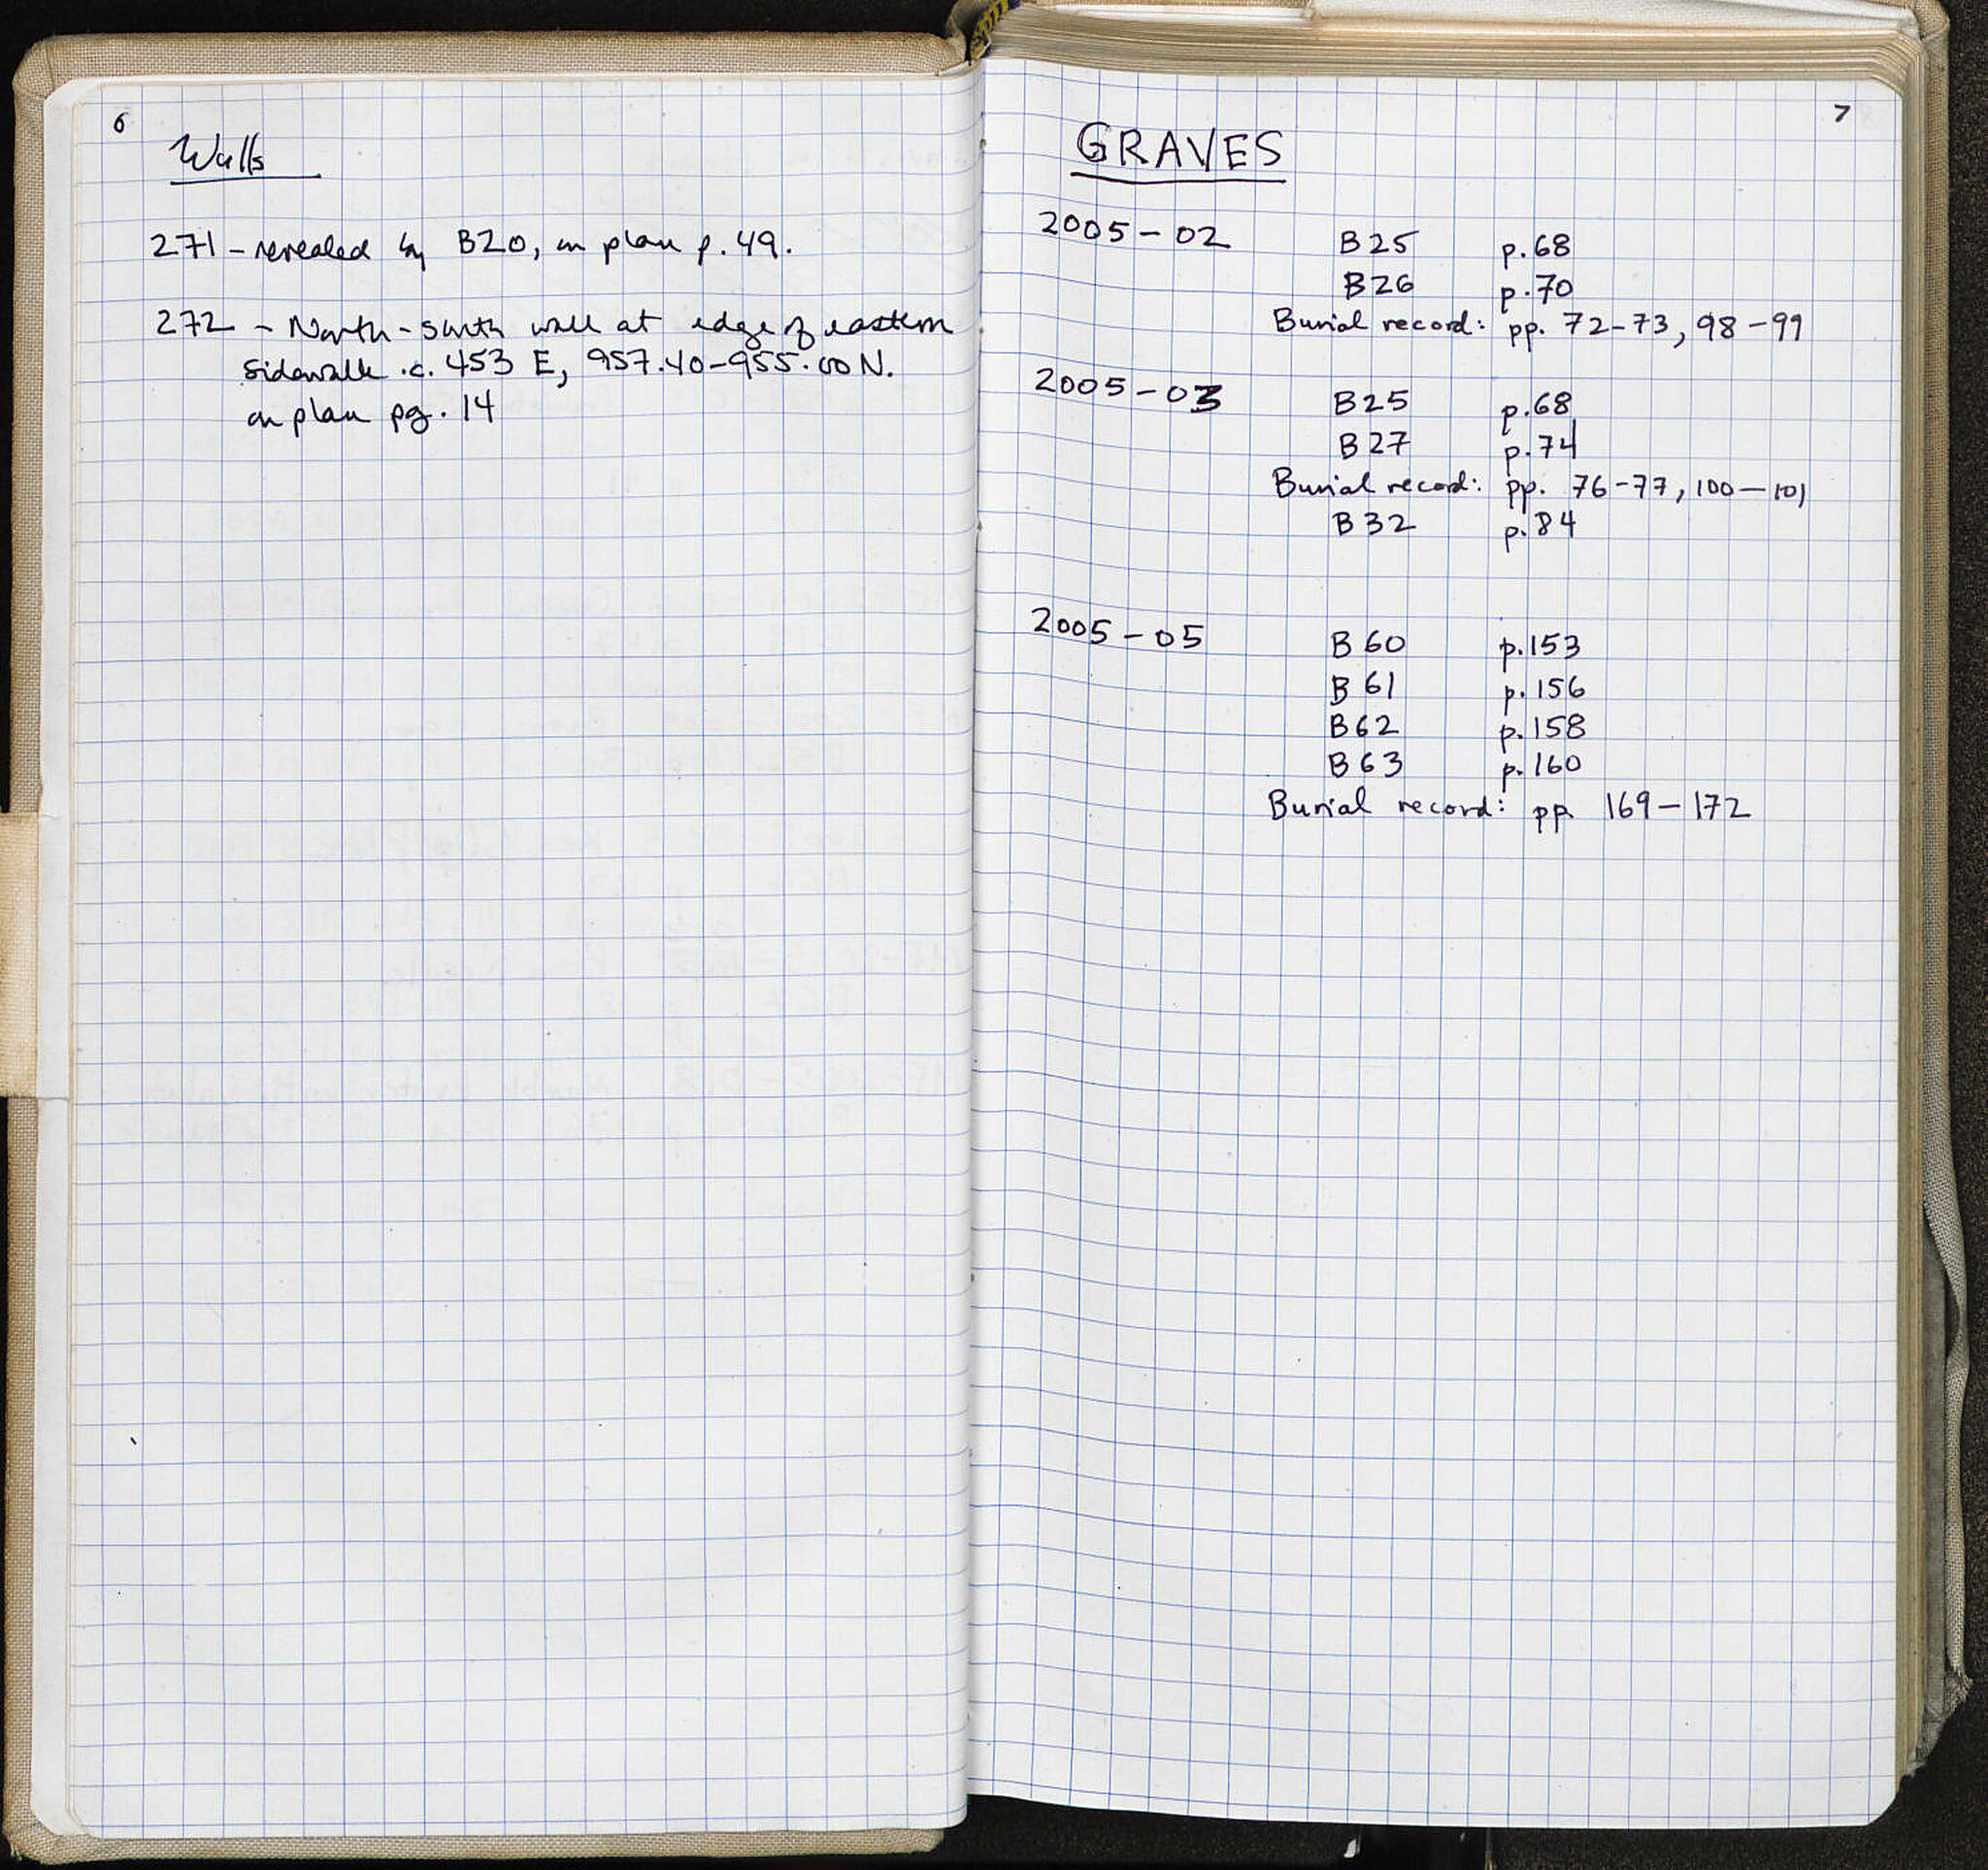 6
Walls
271 - revealed by B20, on plan p. 49.
272 - North-South wall at edge of eastern
sidewalk .c. 453 E, 957.40-955.00 N.
on plan pg. 14
7
GRAVES
2005-02 B25 p.68
B26 p.70
Burial record: pp. 72-73, 98-99
2005-03 B25 p.68
B27 p.74
Burial record: pp. 76-77, 100-101
B32 p.84
2005-05 B60 p.153
B61 p.156
B62 p.158
B63 p.160
Burial record: pp. 169-172